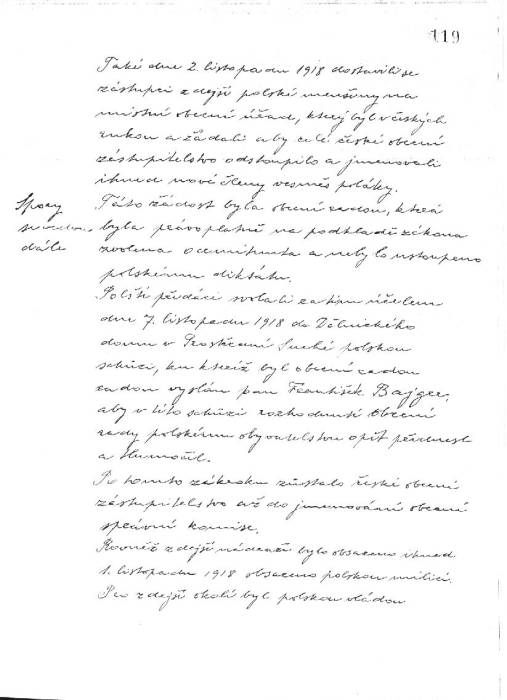 119
Také dne 2. listopadu 1918 dostavili se
zástupci zdejší polské menšiny na
místní obecní úřad, který byl v českých
rukou a žádali aby celé české obecní
zastupitelstvo odstoupilo a jmenovali
ihned nové členy vesměs poláky.
Spory
dále
Tato žádost byla obecní radou, která
byla právoplatně na podkladě zákona
zvolena odmítnuta a nebylo ustoupeno
polskému diktátu.
Polští předáci svolali za tím účelem
dne 7. listopadu 1918 do Dělnického
domu v Prostřední Suché polskou
schůzi, ku kteréž byl obecní radou
radou vyslán pan František Bajger,
aby v této schůzi rozhodnutí obecní
rady polskému obyvatelstvu opět přednesl
a tlumočil.
Po tomto zákroku zůstalo české obecní
zastupitelstvo až do jmenování obecní
správní komise.
Rovněž zdejší nádraží bylo obsazeno ihned
1. listopadu 1918 obsazeno polskou milicí.
Pro zdejší okolí byl polskou vládou